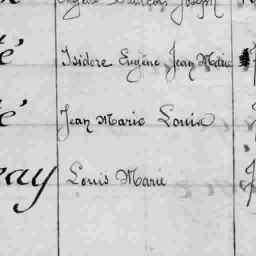 Eugène François Joseph
é Isidore Eugène Jean Marie
é Jean Marie Louis
ay Louis Marie